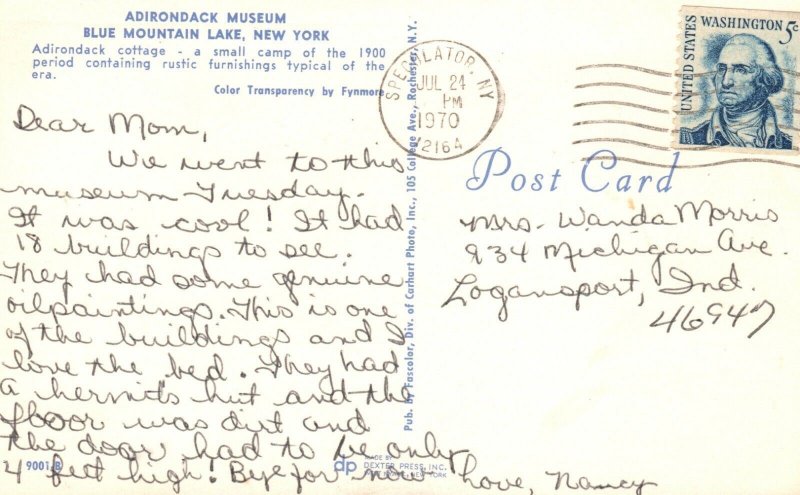 ADIRONDACK MUSEUM
BLUE MOUNTAIN LAKE, NEW YORK
Adirondack cottage - a small camp of the 1900
period containing rustic furnishings typical of the
era.
Color Transparency by Fynmore
Dear Mom,
We went to this
museum Tuesday.
It was cool! It had
18 buildings to see.
They had some genuine
oilpaintings. This is one
of the buildings and I
love the bed. They had
a hermits hut and the
floor was dirt and
the door had to be only
4 feet high! Bye for now
Love, Nancy
9001-B
dp
MADE BY
DEXTER PRESS, INC.
WEST NYACK, NEW YORK
Pub. by Fascolor, Div. of Carhart Photo, Inc., 105 College Ave., Rochester, N.Y.
SPECULATOR, NY
JUL 24
PM
1970
12164
UNITED STATES
WASHINGTON 5c
Post Card
Mrs. Wanda Morris
934 Michigan Ave.
Logansport, Ind.
46947